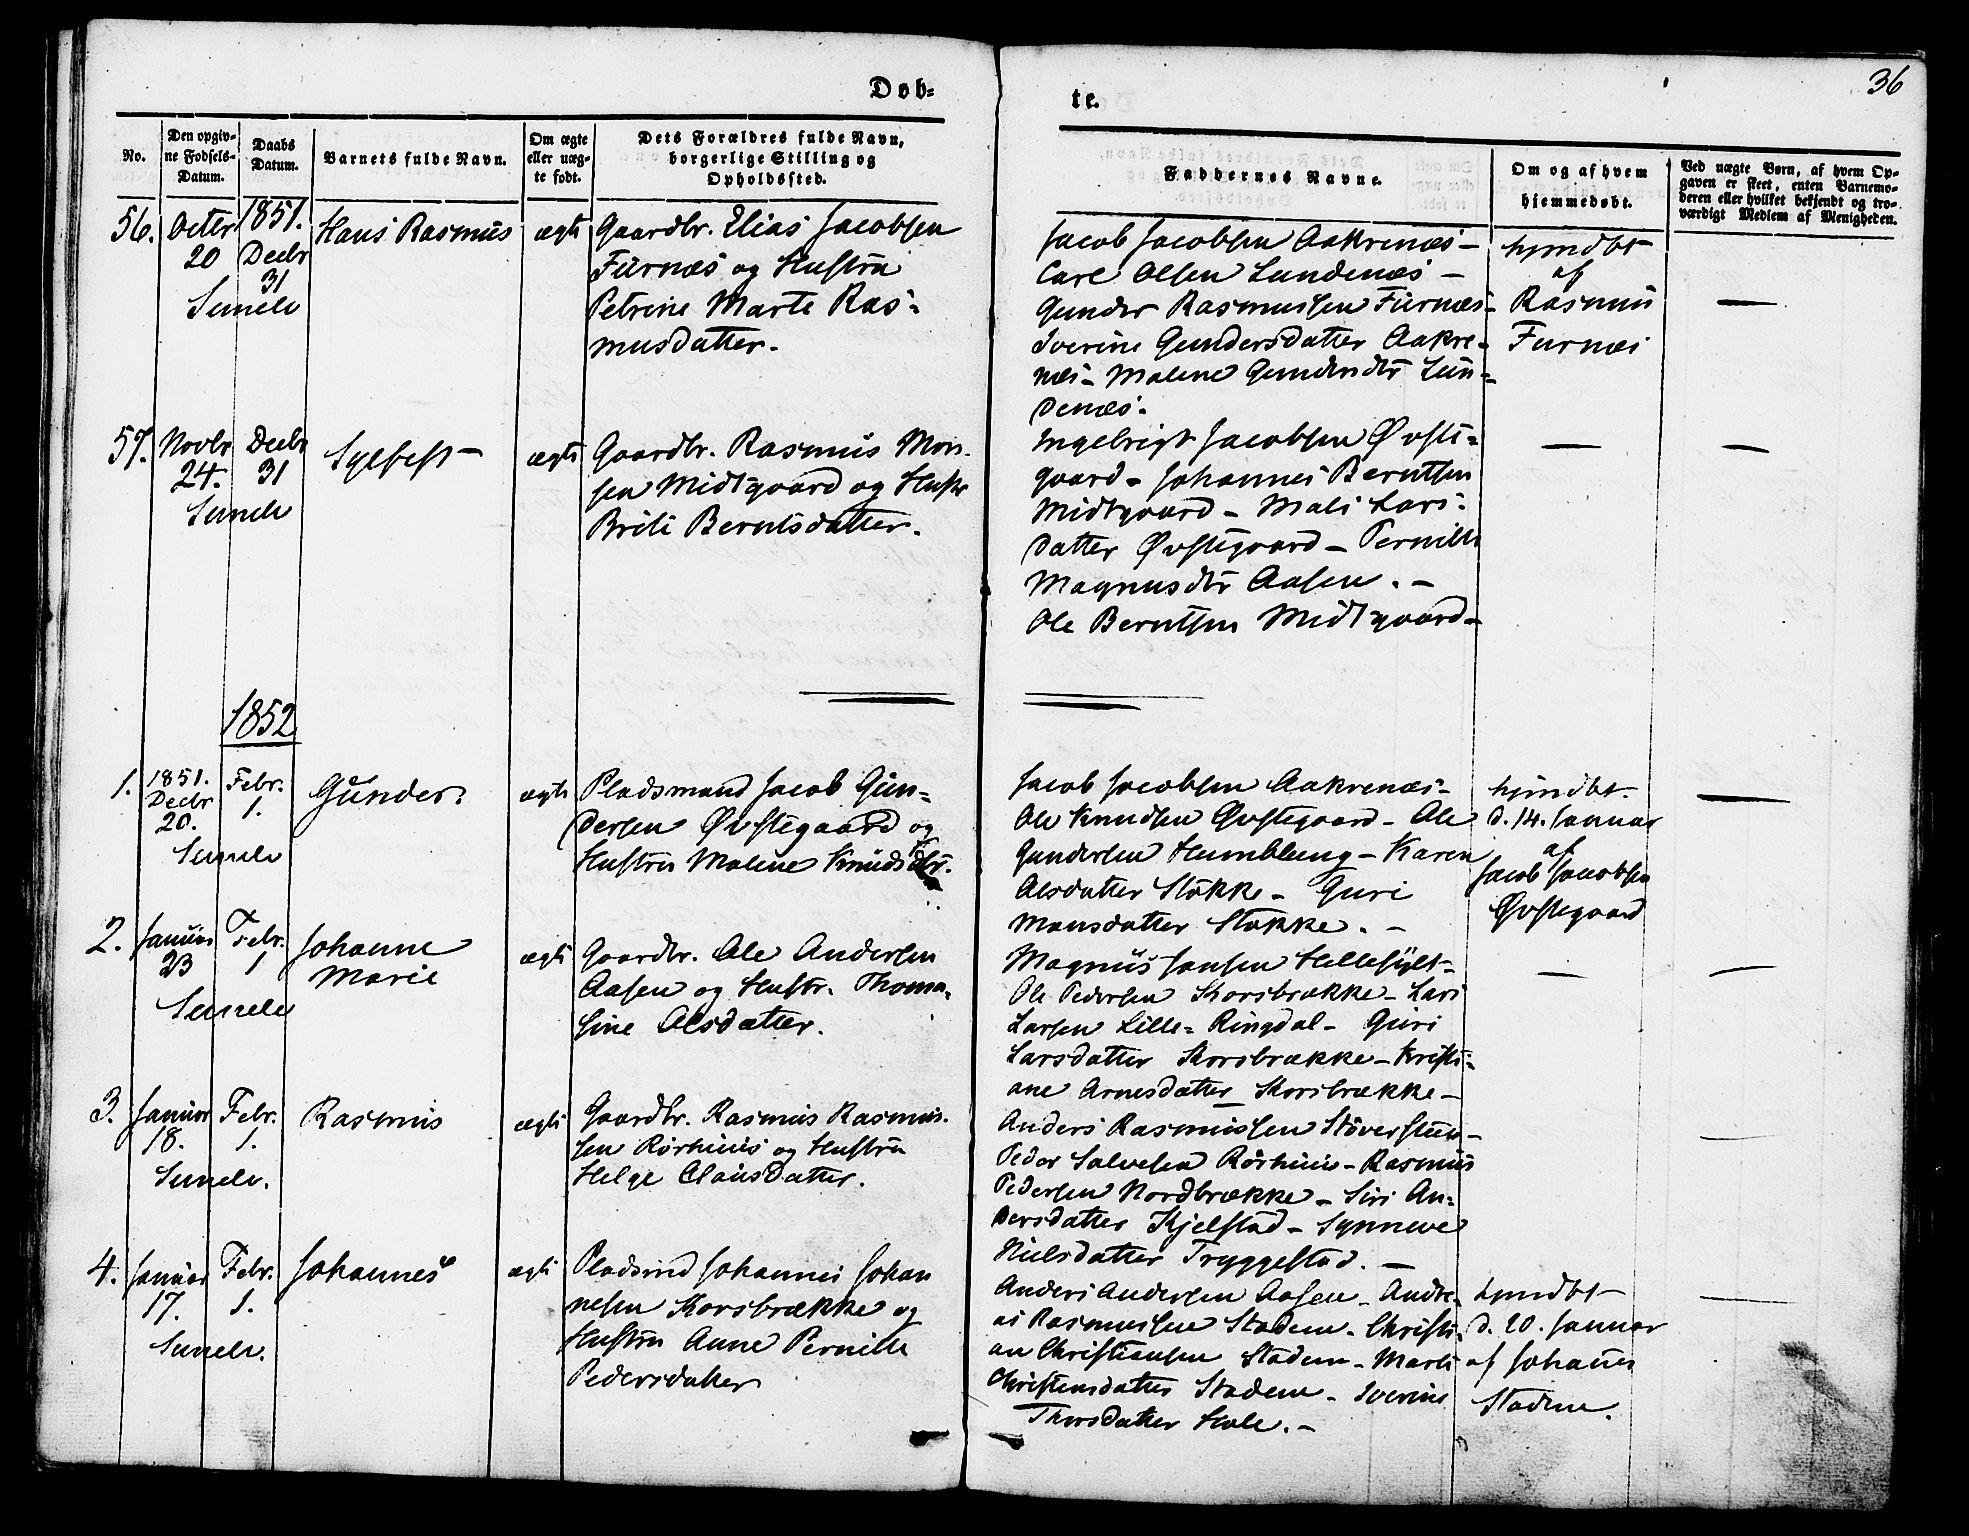 36
Døb-
te.
No.
Den opgiv-
ne Fødsels-
Datum.
Daabs
Datum.
Barnets fulde Navn.
Om ægte
eller uæg-
te født.
Dets Forældres fulde Navn,
borgerlige Stilling og
Opholdssted.
Faddernes Navne.
Om og af hvem
hjemmedøbt.
Ved uægte Børn, af hvem Op-
gaven er skeet, enten Barnemo-
deren eller hvilket bekjendt og tro-
værdigt Medlem af Menigheden.
56.
Octbr
20
1851.
Decbr
31
Sunelv
Hans Rasmus
ægte
Gaardbr. Elias Jacobsen
Furnæs og Hustru
Petrine Marte Ras-
musdatter.
Jacob Jacobsen Aakrenæs -
Carl Olsen Lundenæs -
Gunder Rasmussen Furnæs -
Iverine Gundersdatter Aakre-
næs - Malene Gundersdtr Lun-
denæs.
hjmdbt
af
Rasmus
Furnæs
57.
Novbr
24.
Decbr
31
Sunelv
Sylfest
ægte
Gaardbr. Rasmus Mon-
sen Midtgaard og Hustr
Brite Berntsdatter.
Ingebrigt Jacobsen Øvste-
gaard - Johannes Berntsen
Midtgaard - Mali Lars-
datter Øvstegaard - Pernille
Magnusdtr Aasen. -
Ole Berntsen Midtgaard -
1852
1.
1851.
Decbr
20.
Febr.
1.
Sunelv
Gunder.
ægte
Pladsmand Jacob Gun-
dersen Øvstegaard og
Hustru Malene Knudsdtr.
Jacob Jacobsen Aakrenæs -
Ole Knudsen Øvstegaard - Ole
Gundersen Humblung - Karen
Olsdatter Stokke - Guri
Monsdatter Stokke. -
hjmdbt.
d. 14. Januar
af
Jacob Jacobsen
Øvstegaard
2.
Januar
23
Febr.
1
Sunelv
Johanne
Marie
ægte
Gaardbr. Ole Andersen
Aasen og Hustr. Thoma-
sine Olsdatter.
Magnus Jansen Hellesylt -
Ole Pedersen Korsbrække - Lars
Larsen Lille-Ringdal - Guri
Larsdatter Korsbrække - Kristi-
ane Arnesdatter Korsbrække -
3.
Januar
18.
Febr.
1.
Sunelv.
Rasmus
ægte
Gaardbr. Rasmus Rasmus-
sen Rørhuus og Hustru
Helge Clausdatter.
Anders Rasmussen
Peder Salvesen Rørhuus - Rasmus
Pedersen Nordbrække - Siri An-
dersdatter Kjelstad - Synneve
Nielsdatter Tryggestad. -
4.
Januar
17.
Febr.
1.
Sunelv.
Johannes
ægte
Pladsmd Johannes Johan
nesen Korsbrække og
Hustru Anne Pernille
Pedersdatter
Anders Andersen Aasen - Andre-
as Rasmussen Stadem - Christi-
an Christiansen Stadem - Marte
Christensdatter Stadem - Iverine
Thorsdatter Hole. -
hjmdbt
d. 20. Januar
af Johannes
Stadem.